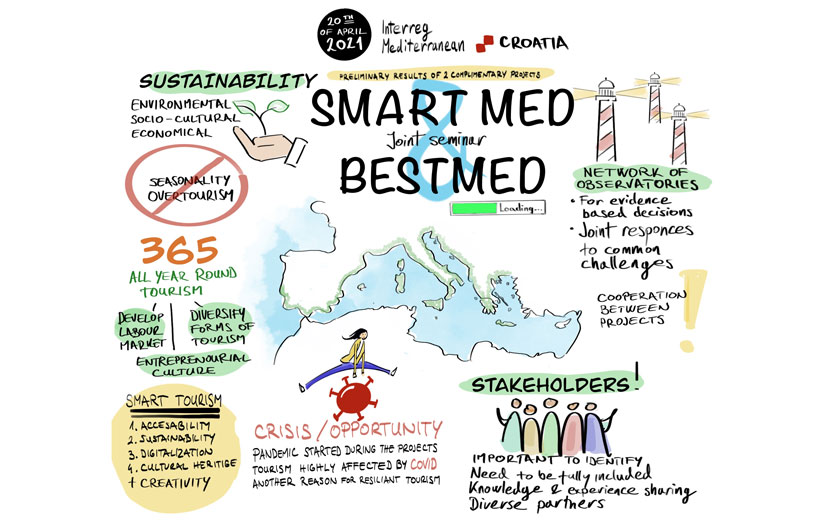 20TH
OF APRIL
2021
Interreg
Mediterranean
CROATIA
PRELIMINARY RESULTS OF 2 COMPLIMENTARY PROJECTS
SMART MED
&
Joint seminar
BESTMED
Loading...
SUSTAINABILITY
ENVIRONMENTAL
SOCIO-CULTURAL
ECONOMICAL
SEASONALITY
OVERTOURISM
365
ALL YEAR ROUND
TOURISM
DEVELOP
LABOUR
MARKET
DIVERSIFY
FORMS OF
TOURISM
ENTREPRENOURIAL
CULTURE
SMART TOURISM
1. ACCESABILITY
2. SUSTAINABILITY
3. DIGITALIZATION
4. CULTURAL HERITIGE
+ CREATIVITY
CRISIS/OPPORTUNITY
PANDEMIC STARTED DURING THE PROJECTS
TOURISM HIGHLY AFFECTED BY COVID
ANOTHER REASON FOR RESILIANT TOURISM
NETWORK OF
OBSERVATORIES
• For evidence
based decisions
• Joint responces
to common
challenges
COOPERATION
BETWEEN
PROJECTS
!
STAKEHOLDERS!
IMPORTANT TO IDENTIFY
Need to be fully included
Knowledge & experience sharing
Diverse partners